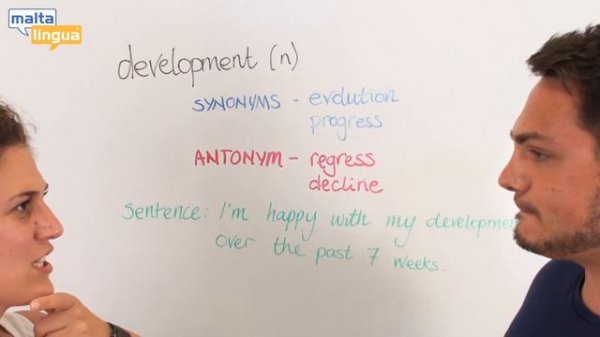 malta
lingua
development (n)
SYNONYMS - evolution
progress
ANTONYM - regress
decline
Sentence: I'm happy with my developmen
over the past 7 weeks.